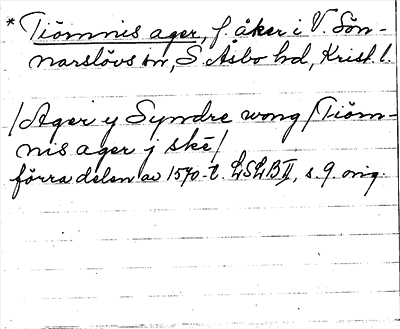 * Tiömnis ager, f. åker i V. Sön-
narslövs sn, S. Åsbo hd, Krist. l.
/Ager y Syndre wong/Tiöm-
nis ager j ské/
förra delen av 1570-t. LSLB II, s. 9. orig.